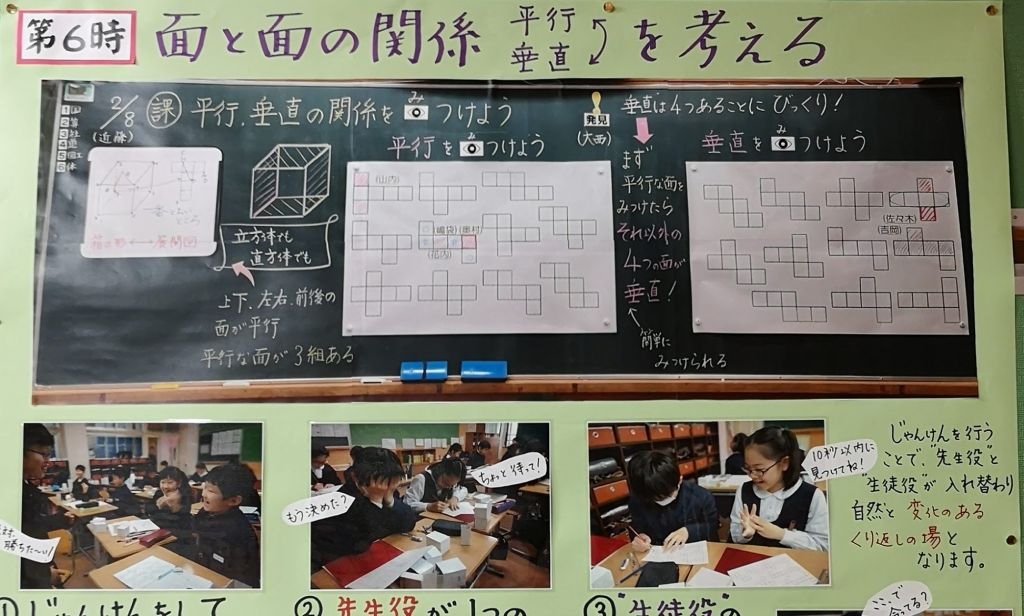 第6時
面と面の関係 平行 垂直 を考える
2/8
(近藤)
課 平行、垂直の関係を
み
つけよう
箱の形 ⟷ 展開図
立方体でも
直方体でも
上下、左右、前後の
面が平行
平行な面が3組ある
平行を
み
つけよう
(山内)
(嶋袋)(奥村)
(花内)
発見
(大西)
垂直は4つあることにびっくり!
まず
平行な面を
みつけたら
それ以外の
4つの面が
垂直!
簡単に
みつけられる
垂直を
み
つけよう
(佐々木)
(吉岡)
勝ちた~い!
もう決めた?
ちょっと待って!
10秒以内に
見つけてね!
じゃんけんを行う
ことで、"先生役"と
"生徒役"が入れ替わり
自然と変化のある
くり返しの場と
なります。
①じゃんけんをして
②先生役が1つの
③"生徒役"の
ここで